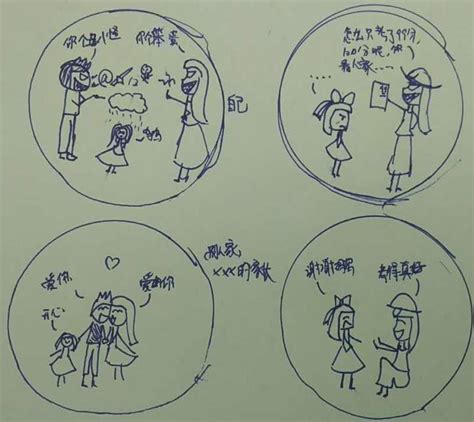 你个
个笨蛋
怎么只考了99分,
120分呢,你
看人家……
……
自己
别人家
xxx的家长
爱你
爱你
开心
谢谢妈妈
考得真好